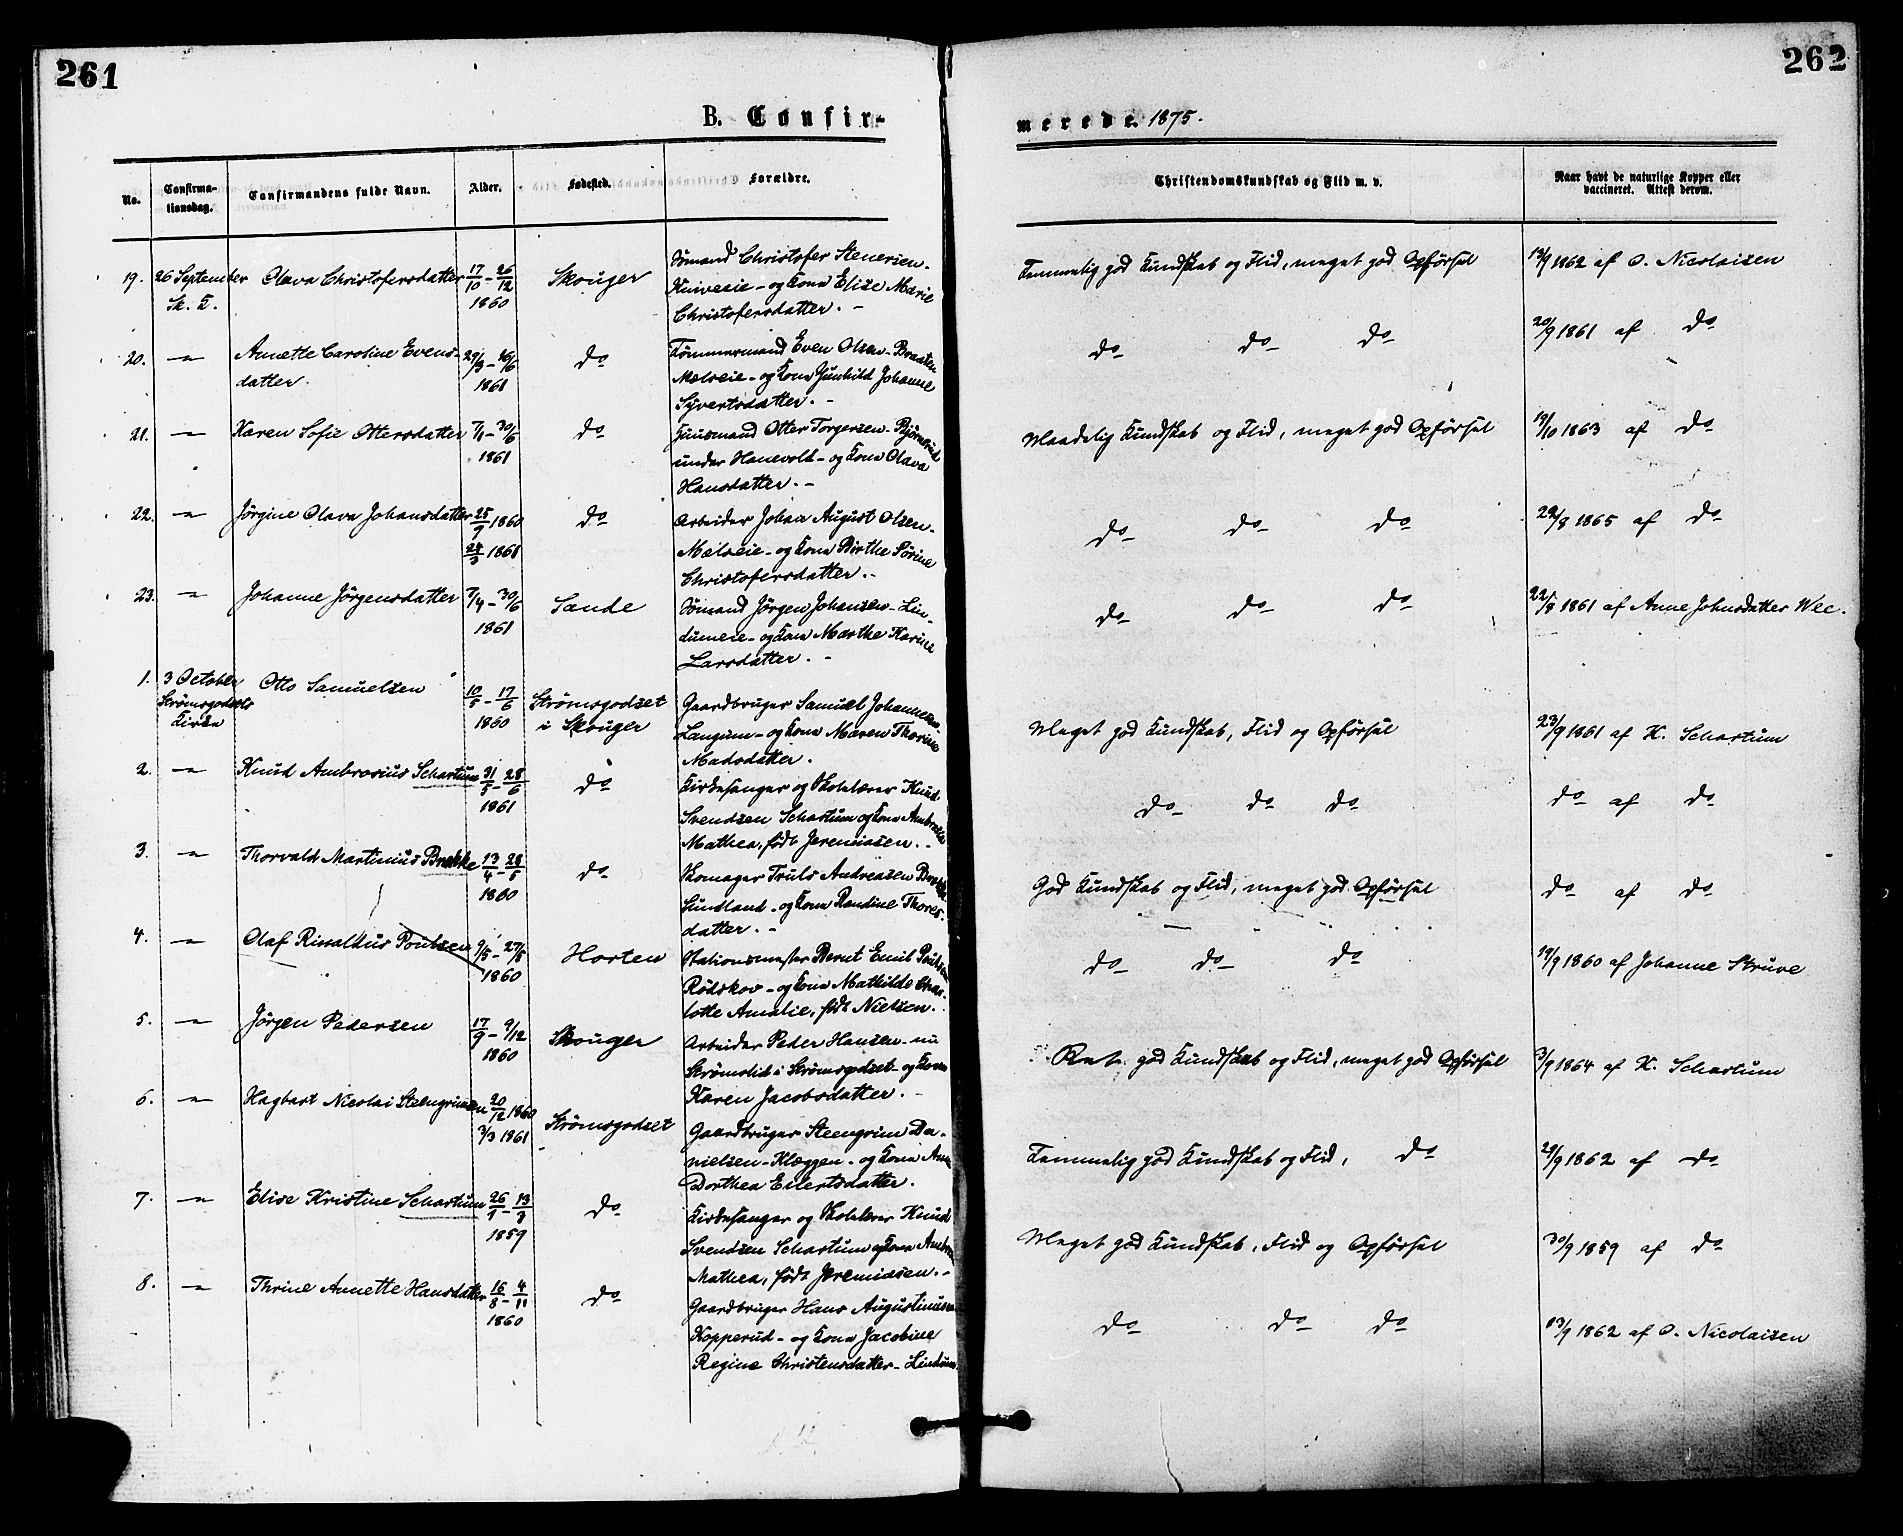 261
262
B. Confir-
merede. 1875.
No.
Confirma-
tionsdag.
Confirmandens fulde Navn.
Alder.
Fødested.
Forældre.
Christendomskundskab og Flid m. v.
Naar havt de naturlige Kopper eller
vaccineret. Attest derom.
19. 26 September Olava Christofersdatter 17/10 - 26/12 Skouger
Sk. K. 1860
Sømand Christofer Stenersen -
Kniveeie - og Kone Elise Marie
Christofersdatter. -
Temmelig god Kundskab og Flid, meget god Opførsel
19/9 1862 af O. Nicolaisen
20. -"- Anette Caroline Evens- 29/3 - 26/6 do
datter. 1861
Tømmermand Even Olsen - Braaten
Mælseie - og Kone Gunhild Johanne
Syvertsdatter. -
do do do
20/9 1861 af do
21. -"- Karen Sofie Ottersdatter 7/1 - 30/6 do
1861
Huusmand Otter Torgersen - Bjørnerud
under Hanevold - og Kone Olava
Hansdatter. -
Maadelig Kundskab og Flid, meget god Opførsel
19/10 1863 af do
22. -"- Jørgine Olava Johansdatter 25/9 1860 do
24/3 1861
Arbeider Johan August Olsen -
Mælseie - og Kone Birthe Sørine
Christofersdatter. -
do do do
22/8 1865 af do
23. -"- Johanne Jørgensdatter 7/4 - 30/6 Sande
1861
Sømand Jørgen Johansen - Lin-
dumeie - og Kone Marthe Karine
Larsdatter. -
do do do
22/8 1861 af Anne Johnsdatter Wee.
1. 3 October Otto Samuelsen 10/5 - 17/6 Strømsgodset
Strømsgodsets 1860 i Skouger
Kirke
Gaardbruger Samuel Johannesen
Langum - og Kone Maren Thorine
Madsdatter.
Meget god Kundskab, Flid og Opførsel
23/9 1861 af K. Schartum
2. -"- Knud Ambrosius Schartum 31/5 - 28/6 do
1861
Kirkesanger og Skolelærer Knud
Svendsen Schartum og Kone Ambrosia
Mathea, født Jeremiasen. -
do do do
do af do
3. -"- Thorvald Martinius Brække 13/4 - 28/5 do
1860
Skomager Truls Andreasen Brække
Sundland - og Kone Randine Thores-
datter. -
God Kundskab og Flid, meget god Opførsel
do af do
4. -"- Olaf Rinaldus Poulsen 9/5 - 27/5 Horten
1860
Stationsmester Bernt Emil Poulsen
Rødskov - og Kone Mathilde Char-
lotte Amalie, født Nielsen.
do do do
19/9 1860 af Johanne Struve
5. -"- Jørgen Pedersen 17/9 - 9/12 Skouger
1860
Arbeider Peder Hansen - nu
Strømslid i Strømsgodset - og Kone
Karen Jacobsdatter. -
Ret god Kundskab og Flid, meget god Opførsel
3/9 1864 af K. Schartum
6. -"- Hagbart Nicolai Steengrimsen 20/12 1860 Strømsgodset
3/3 1861
Gaardbruger Steengrim Da-
nielsen - Klæggen - og Kone Anne
Dorthea Eilertsdatter.
Temmelig god Kundskab og Flid, do
21/9 1862 af do
7. -"- Elise Kristine Schartum 26/1 - 13/3 do
1859
Kirkesanger og Skolelærer Knud
Svendsen Schartum og Kone Ambrosia
Mathea, født Jeremiasen. -
Meget god Kundskab, Flid og Opførsel
30/9 1859 af do
8. -"- Thrine Annette Hansdatter 16/8 - 4/11 do
1860
Gaardbruger Hans Augustinusen
Kopperud - og Kone Jacobine
Regine Christensdatter - Lindum
do do do
13/9 1862 af O. Nicolaisen